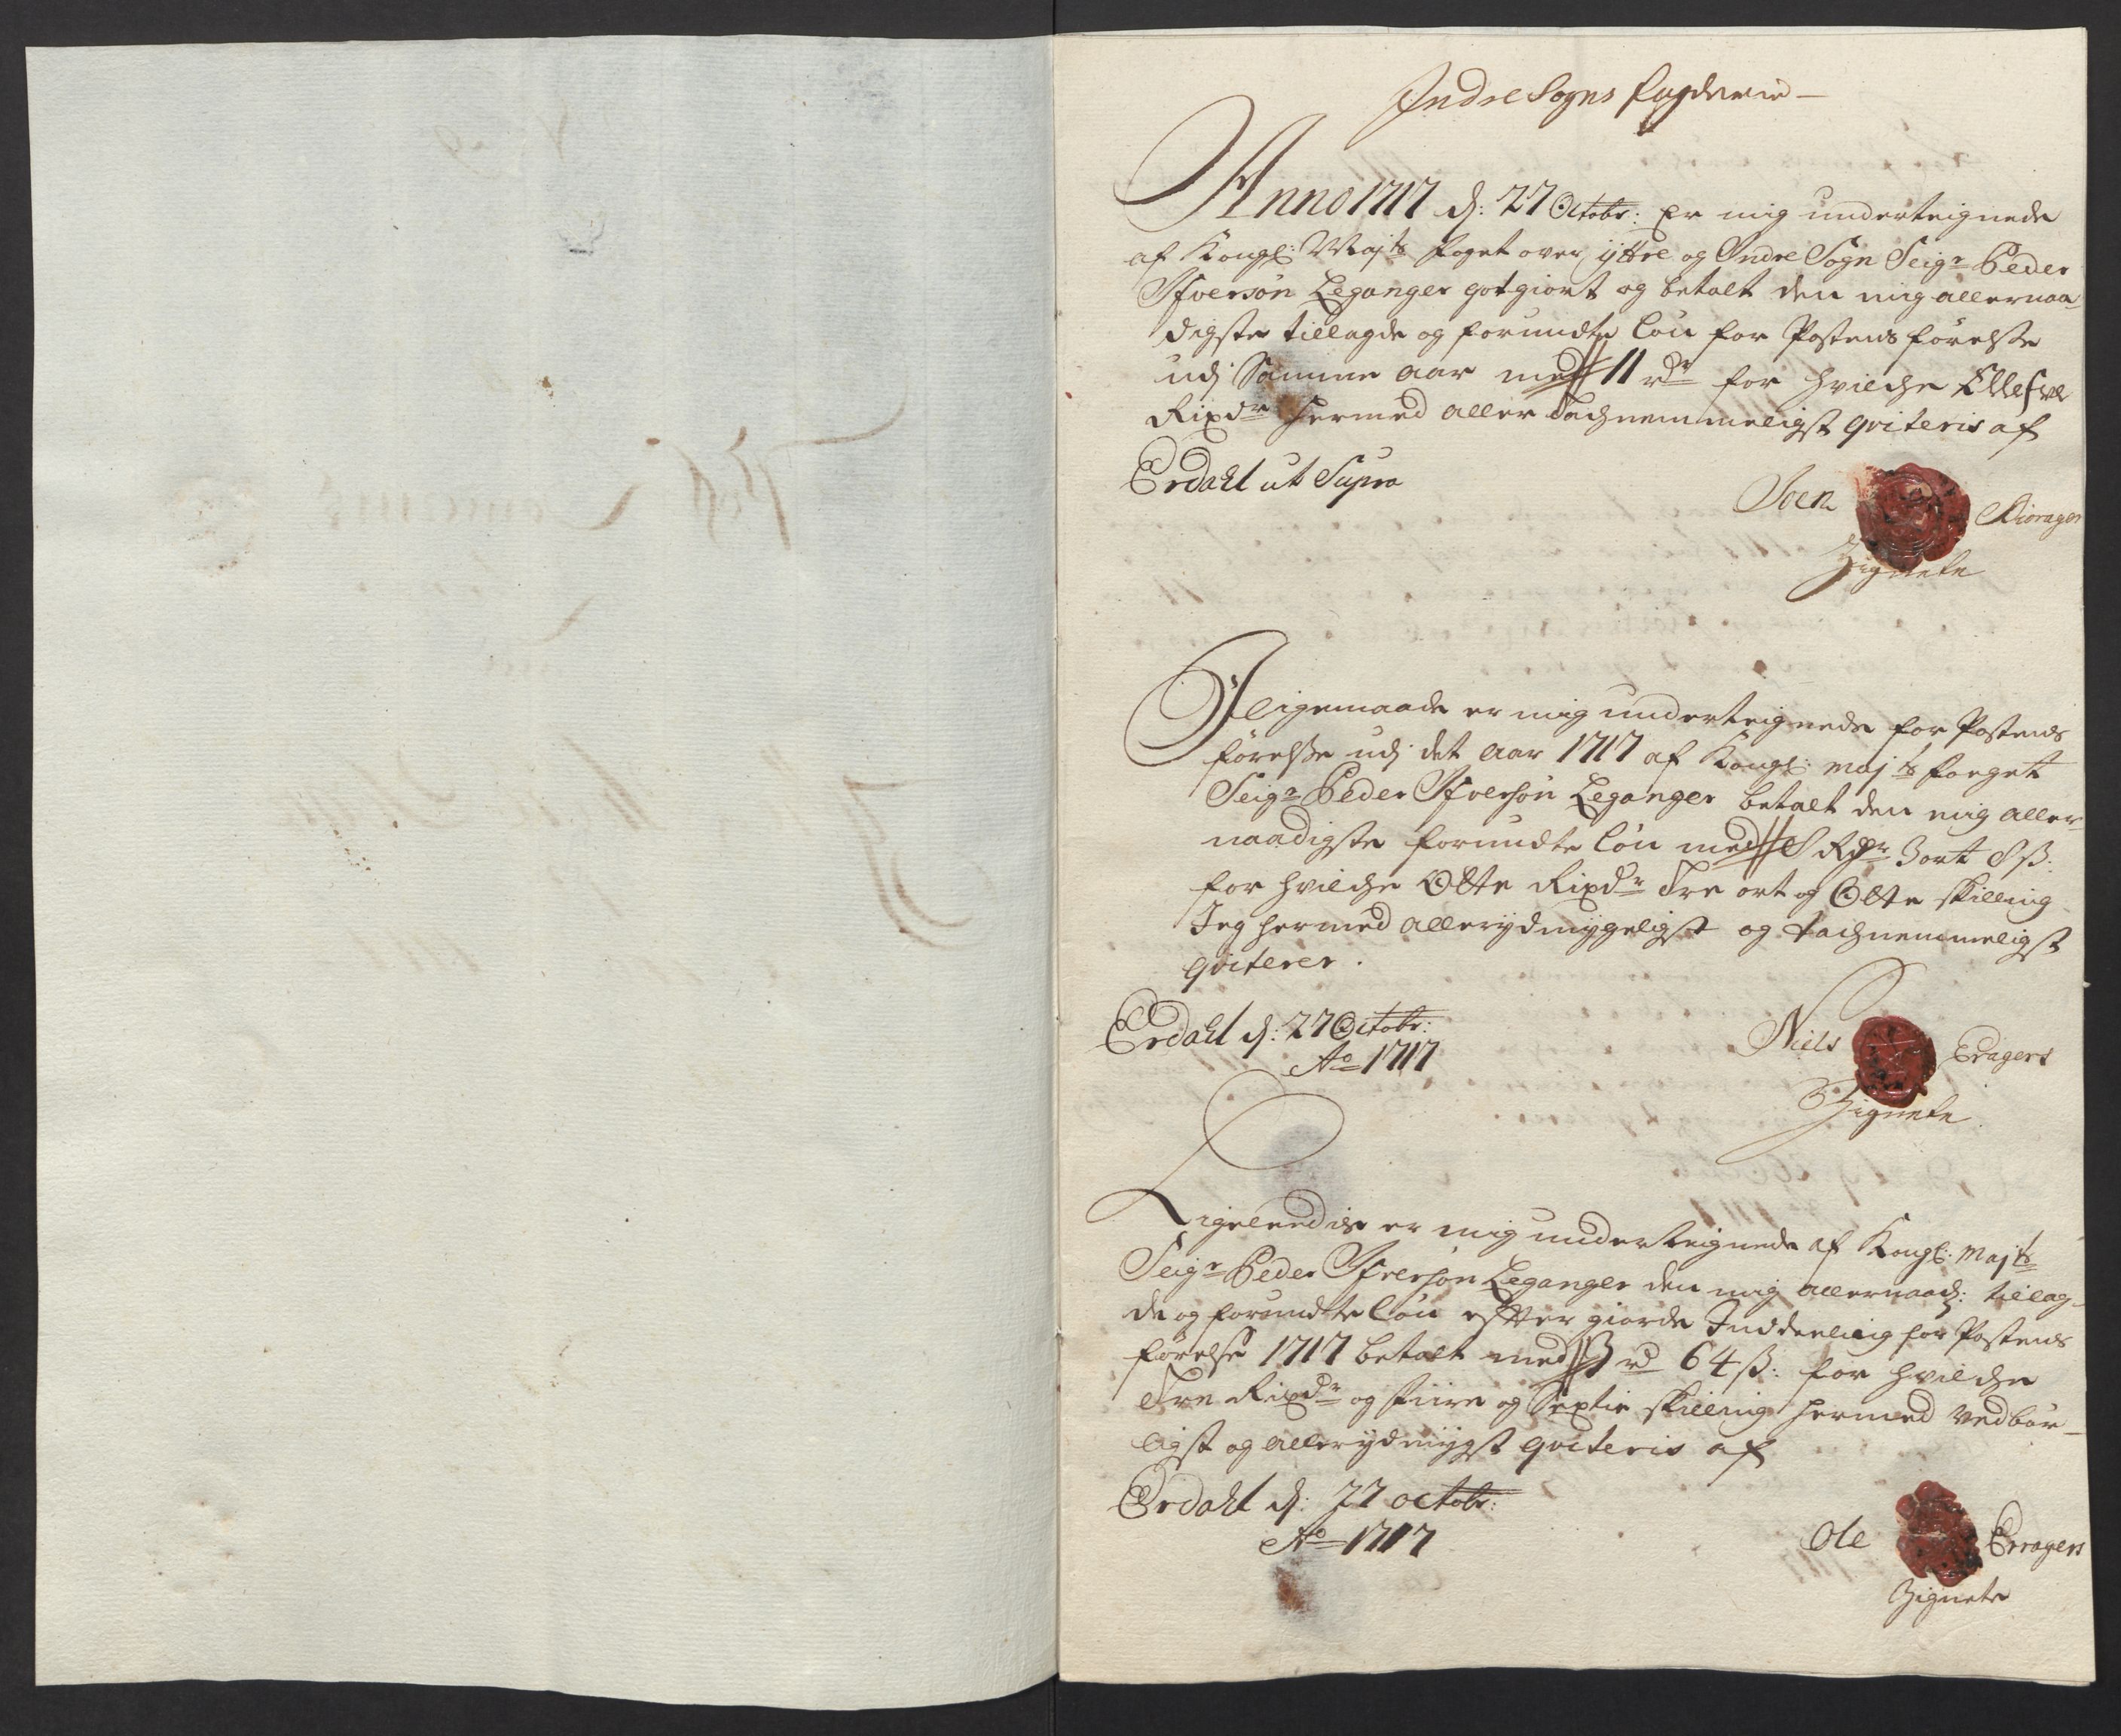 Indre Sogns fogderie
Anno 1717 d: 27 Octobr: Er mig underteignede
af Kongl: Majts foget over ÿttre og Indre Sogn Seigr Peder
Ifversøn Leganger gotgiort og betalt den mig allernaa-
digste tillagde og forundte løn for Postens førelsse
udj Samme aar med 11 rdr for hvilche Ellefve
Rixdr hermed aller tachnemmeligst qviteris af
Erdahl ut Supra
Zignete
I ligemaade er mig underteignede for Postens
førelsse udj det aar 1717 af Kongl: Majts foeget
Seigr Peder Ifversøn Leganger betalt den mig aller-
naadigste forundte løn med 8 Rdr 3 ort 8 ß:
for hvilche Otte Rixdr Tre ort og Otte skilling
Jeg hermed allerÿdmÿgeligst og tachnemmeligst
qviterer.
Erdahl d: 27 Octobr:
Ao 1717
Niels Eragers
Zignete
Ligeledis er mig underteignede af Kongl: Majts
Seigr Peder Ifversøn Leganger den mig allernaad: tillag-
de og forundte løn efter giorde Inddeeling for Postens
førelse 1717 betalt med 3 rd 64 ß: for hvilche
Tre Rixdr og fiire og Sextie skilling hermed vedbør-
ligst og allerÿdmÿgst qviteris af
Erdahl d: 27 octobr:
Ao 1717
Ole Erragers
Zignete